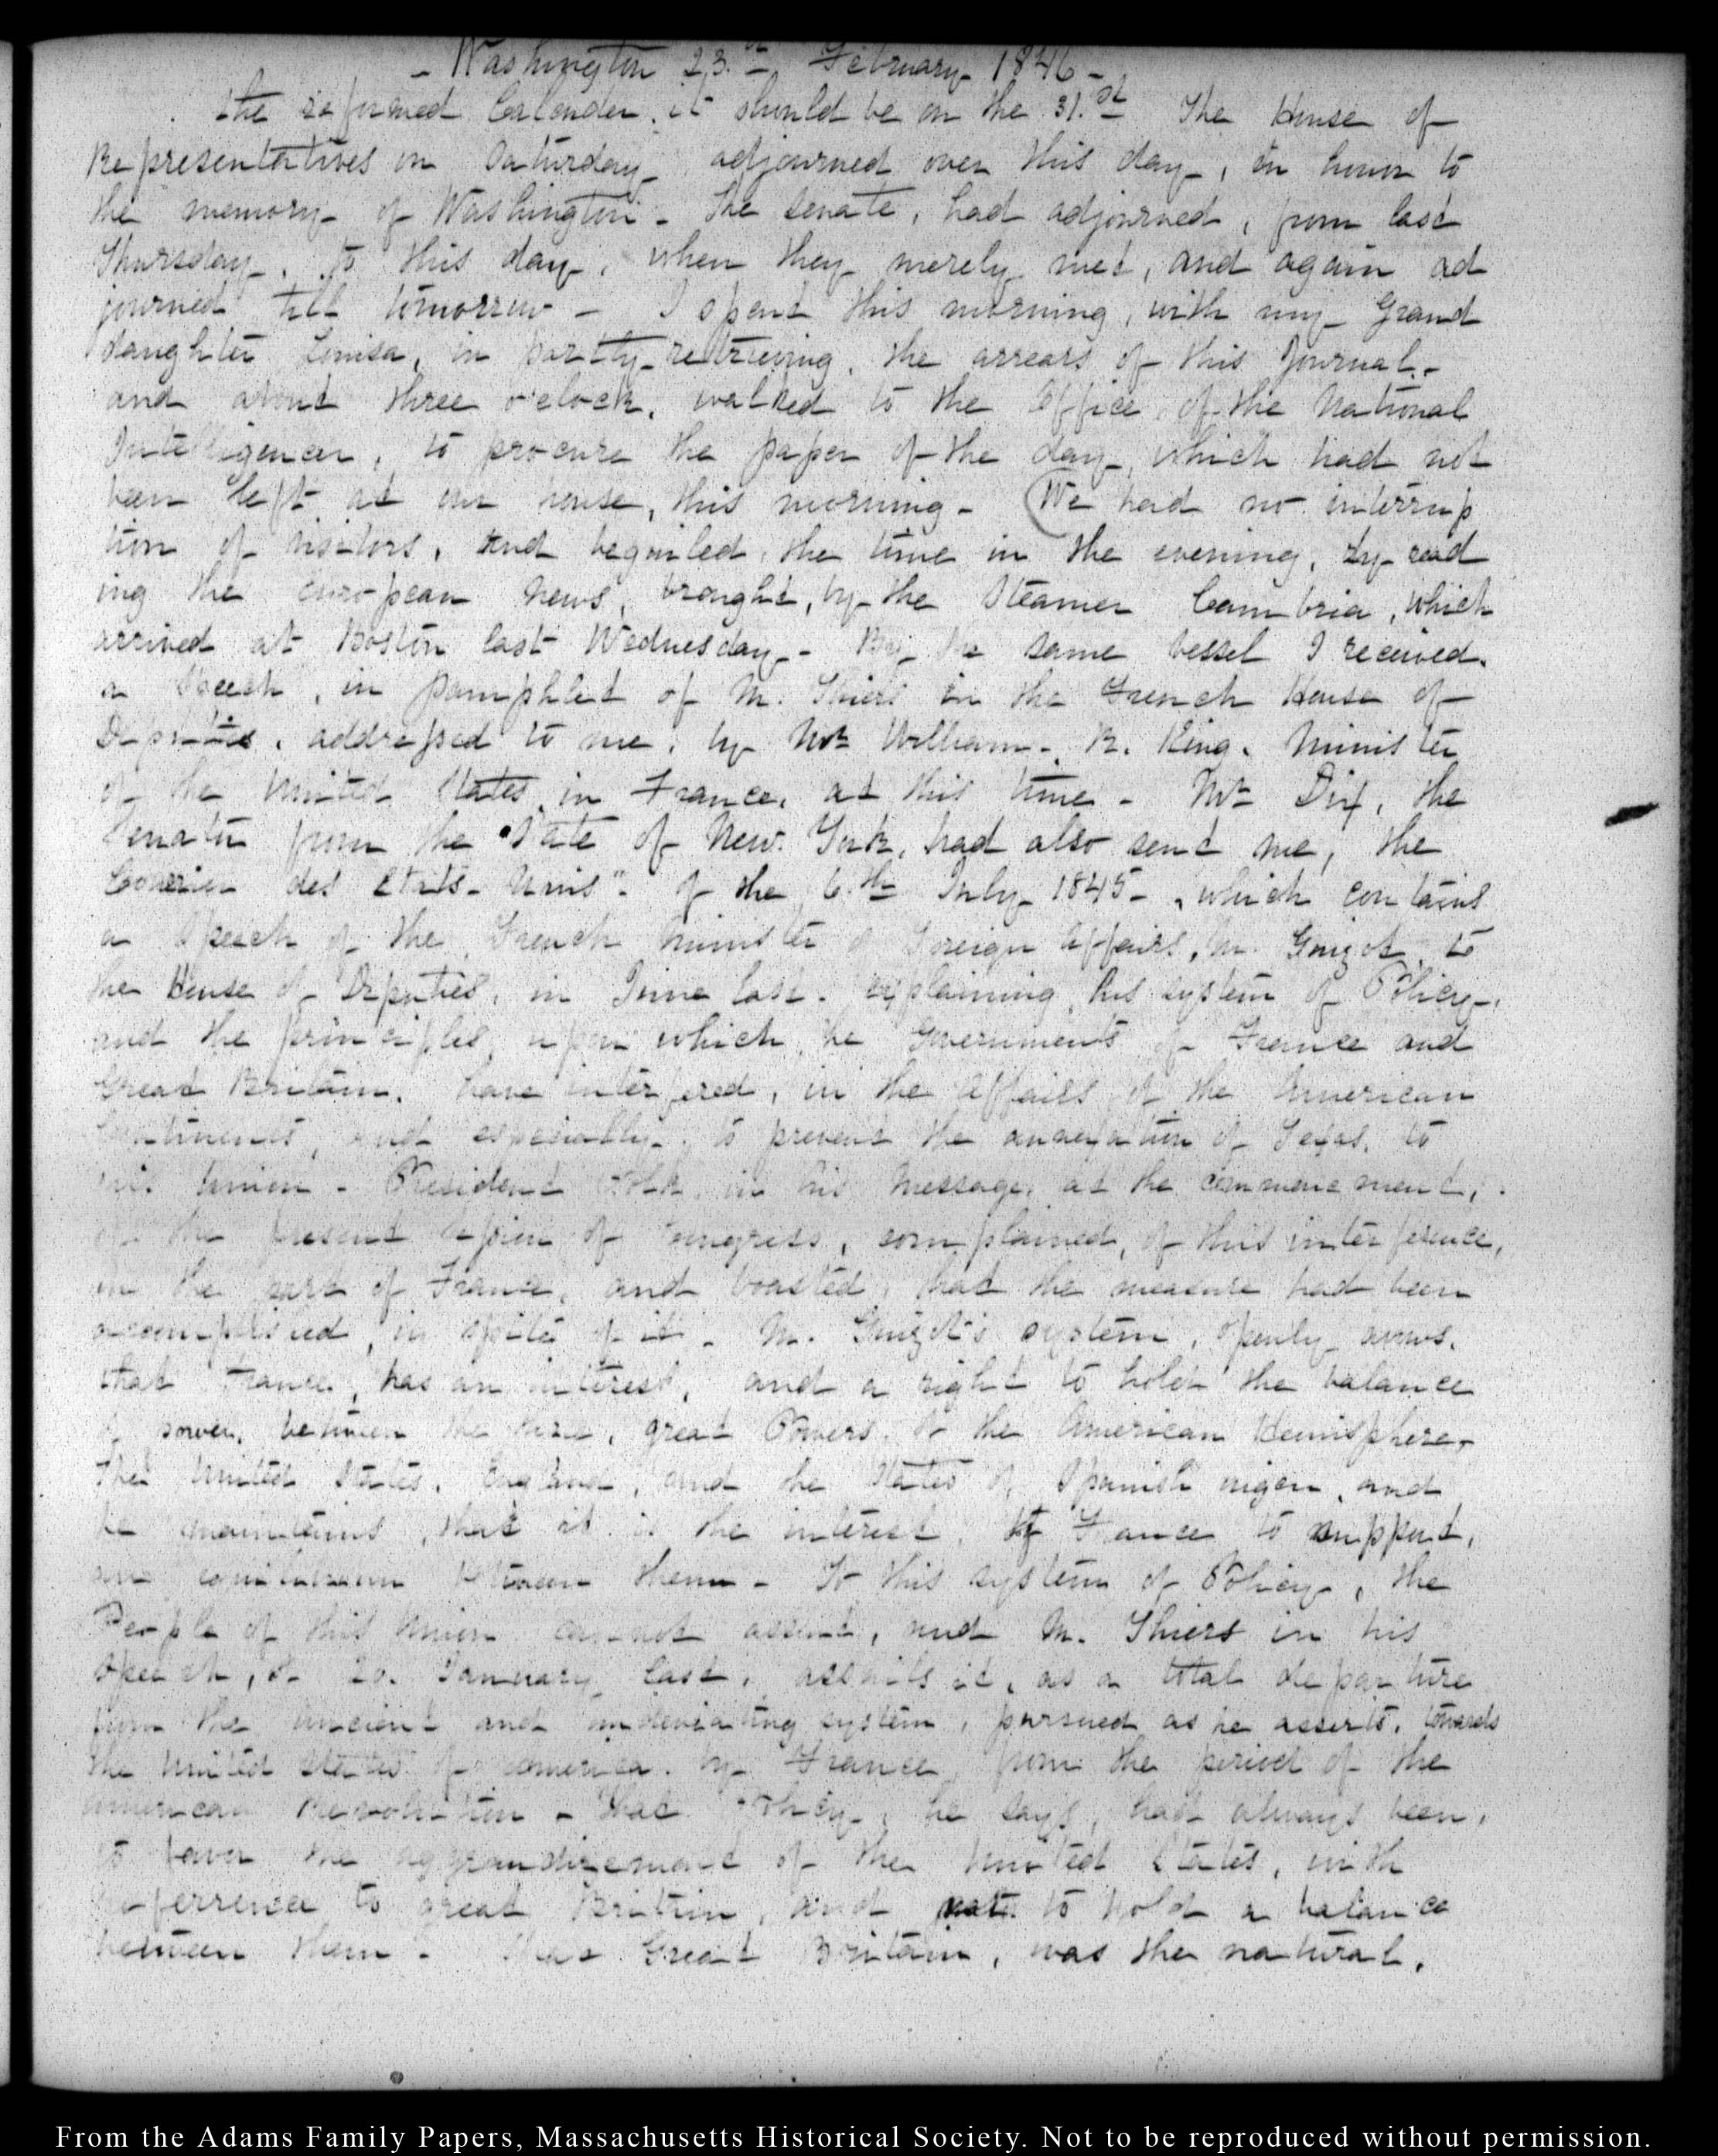 - Washington 23.d February 1846 -
the reformed Calender, it should be on the 31.st The House of
Representatives on Saturday adjourned over this day, in honor to
the memory of Washington - The Senate, had adjourned, from last
Thursday, to this day, when they merely met, and again ad
journed till tomorrow - I spent this morning, with my Grand
daughter Louisa, in partly retrieving, the arrears of this Journal,
and about three o'clock, walked to the Office, of the National
Intelligencer, to procure the paper of the day, which had not
been left at our house, this morning - We had no interrup
tion of visitors, and beguiled, the time in the evening, by read
ing the European News, brought, by the Steamer Cambria, which
arrived at Boston last Wednesday - By the same vessel I received.
a Speech, in pamphlet of M. Thiers in the French House of
Deputies, addressed to me, by Mr William. R. King, Minister
of the United States, in France, at this time - Mr Dix, the
Senator from the State of New York, had also sent me, the
Courier des Etats-Unis" of the 6.th July 1845 -, which contains
a Speech of the French Minister of Foreign Affairs, M. Guizot, to
the House of Deputies, in June last. explaining, his system of Policy,
and the principles, upon which, the Governments of France and
Great Britain, have interfered, in the affairs of the American
Continents, and especially, to prevent the annexation of Texas, to
this Union - President Polk, in his Message, at the commencement,
of the present Session of Congress, complained, of this interference,
on the part of France, and boasted, that the measure had been
accomplished, in spite of it - M. Guizot's system, openly avows,
that France, has an interest, and a right to hold the balance
of power, between the three, great Powers, of the American Hemisphere,
The United States, England, and the States of Spanish origin, and
he maintains, that it is the interest, of France to support,
an equilibrium between them - To this system of Policy, the
People of this Union cannot assent, and M. Thiers in his
speech, of 20. January last, assails it, as a total departure
from the ancient and undeviating system, pursued as he asserts, towards
the United States of America. by France, from the period of the
American Revolution - That Policy, he says, had always been,
to favor the aggrandizement of the United States, in
preference to great Britain, and not to hold a balance
between them - That Great Britain, was the natural,
From the Adams Family Papers, Massachusetts Historical Society. Not to be reproduced without permission.